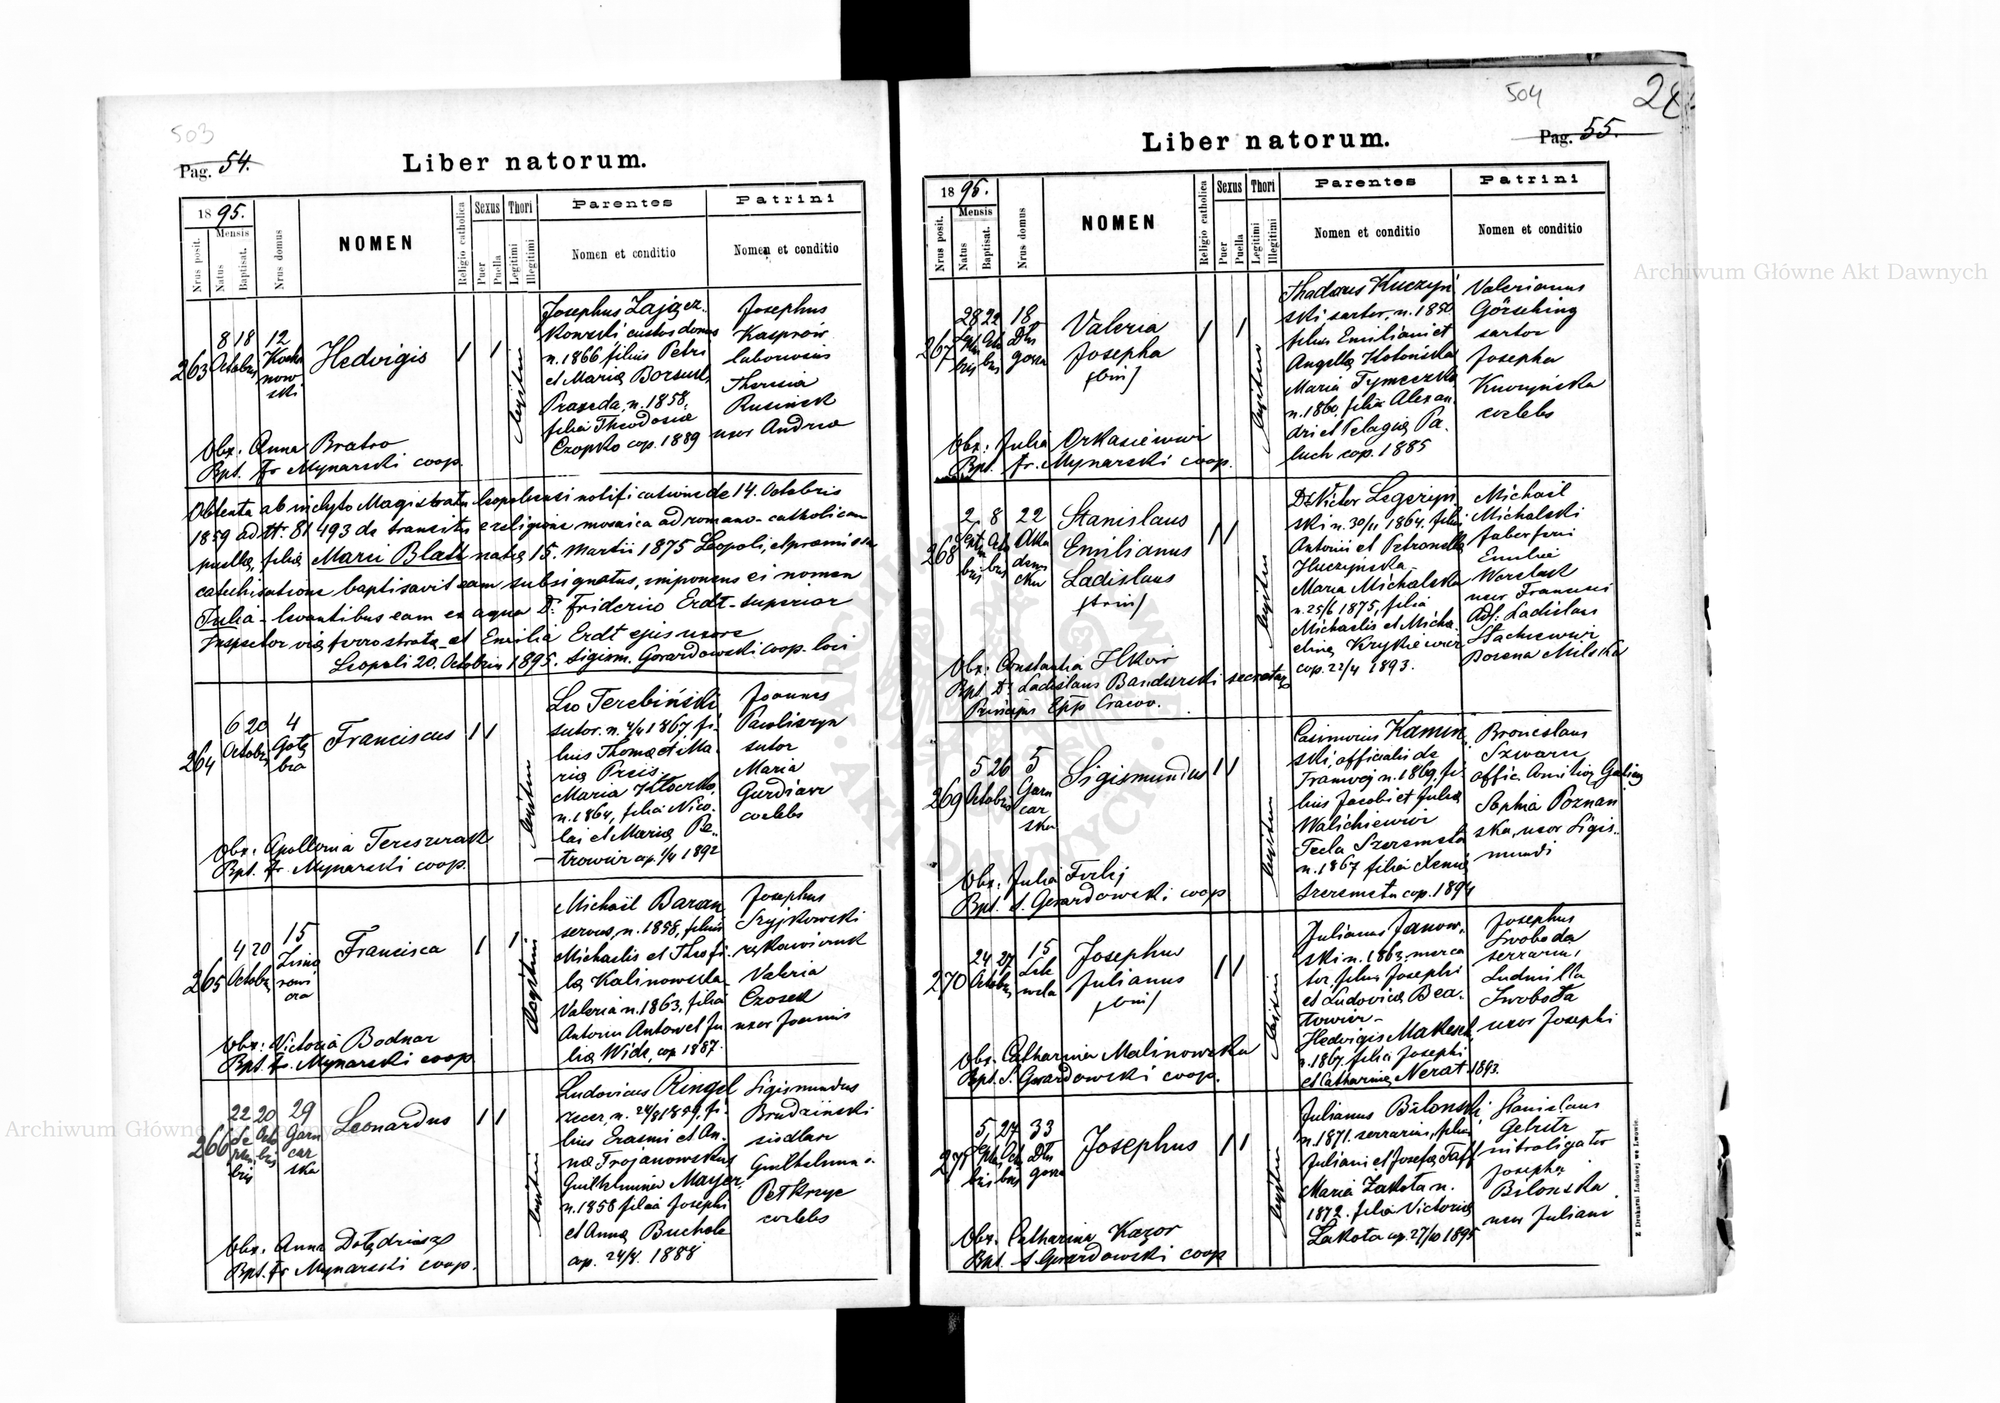 503
Pag. 54.
Liber natorum.
1895.
Mensis
Nrus posit.
Natus
Baptisat.
Nrus domus
NOMEN
Religio catholica
Sexus
Puer
Puella
Thori
Legitimi
Illegitimi
Parentes
Nomen et conditio
Patrini
Nomen et conditio
263
8 18
Octobris
12
Kocha
now
ski
Hedvigis
legitimi
Josephus
custos domus
n. 1866 filius Petri
et Maria
Praxeda, n. 1858,
filia Theodosia
Czopko cop. 1889
Josephus
Kasprow
laborosus
Theresia
Rusinek
uxor Andrea
Obx: Anna Bratro
Bpt. fr Mynarski coop.
Obtenta ab inclyto Magistratu Leopoliensi notificatione de 14. Octobris
1859 ad N: 81493 de transitu e religione mosaica ad romano-catholicam
puella, filia Marci Blatt nata 15. Martii 1875 Leopoli, et praemissa
catechisatione baptisavit eam subsignatus, imponens ei nomen
Julia - levantibus eam ex aqua Dr. Friderico Erdt - superior
Inspector via ferrostrata et Emilia Erdt ejus uxore
Leopoli 20. Octobris 1895. Sigism. Gorardowski coop. loci
264
6 20
Octobris
4
Gołę
bia
Franciscus
legitimi
Leo Terebiński
sutor. n. 4/4 1867, fi-
lius Thoma et Ma-
ria Preis.
Maria Kłoczko,
n. 1864, filia Nico-
lai et Maria Pe-
trowicz cop. 1892
Joannes
Pawliszyn
sutor
Maria
coelebs
Obx: Apollonia Tereszczak
Bpt. fr. Mynarski coop.
265
4 20
Octobris
15
Francisca
legitimi
Michaël Baran
servus, n. 1858, filius
Michaelis et Theofi-
la Kalinowska
Valeria n. 1863, filia
Antonii Antow et Ju
lia Wide, cop 1887.
Josephus
Szyjkowski
Valeria
Czosek
uxor Joannis
Obx: Victoria Bodnar
Bpt. fr. Mynarski coop.
266
22 20
Octo
bris
29
Garn
car
ska
Leonardus
legitimi
Ludovicus Ringel
zecer, n. 24/8 1859, fi-
lius Erasmi et An-
na Trojanowska
Guilhelmina Mayer
n. 1858 filia Josephi
et Anna
cop. 24/8. 1888
Sigismundus
Brudziński
siodlarz
Guilhelmina
Petkrzyc
coelebs
Obx. Anna
Bpt. fr Mynarski coop.
504
Pag. 55.
Liber natorum.
1895.
Mensis
Nrus posit.
Natus
Baptisat.
Nrus domus
NOMEN
Religio catholica
Sexus
Puer
Puella
Thori
Legitimi
Illegitimi
Parentes
Nomen et conditio
Patrini
Nomen et conditio
267
28 22
18
Dłu
gosza
Valeria
Josepha
(bin)
legitimi
Thadaeus Kuczyń
ski sartor, n. 1850.
filius Emiliani et
Angella
Maria Tymeczko
n. 1860. filia Alexan-
dri et Pelagia Pa-
luch cop. 1885
Valerianus
Görsching
sartor
Josepha
Kuczyńska
coelebs
Obx: Julia Orkasiewicz
Bpt. fr. Mynarski coop.
268
2 8
22
Aka
demi
cka
Stanislaus
Emilianus
Ladislaus
(trin)
legitimi
Dr Victor Legezyń
ski n. 30/11 1864. filius
Antonii et Petronella
Huczyńska
Maria Michalska
n. 25/6 1875, filia
Michaelis et Micha-
elina Krykiewicz
cop. 22/4 1893.
Michaël
Michalski
faber ferri
Emilia
Worelask
uxor Francisci
Adj. Ladislaus
Stachiewicz
Bozena Milska
Obx: Constantia
Bpt. Dr Ladislaus Bandurski secretar
Principis Epp Cracov.
269
5 26
Octobris
5
Garn
car
ska
Sigismundus
legitimi
Casimirus Kamiń
ski, officialis de
Tramwaj n. 1869, fi-
lius Jacobi et Julia
Walichiewicz
Tecla Szeremeta
n. 1867 filia Xenia
Szeremeta cop. 1894
Bronislaus
Szwarc
Sophia Poznań
ska, uxor Sigis-
mundi
Obx: Julia
Bpt. S. Gorardowski coop
270
24 27
Octobris
15
Josephus
Julianus
(bin)
legitimi
Julianus Janow-
ski n. 1863, merca
tor, filius Josephi
et Ludovica Bea-
towicz -
Hedvigis
n. 1867. filia Josephi
et Catharina Nerat 1893.
Josephus
Swoboda
serrarius,
Ludmilla
Swoboda
uxor Josephi
Obx: Catharina Malinowska
Bpt. S. Gorardowski coop.
271
5 27
33
Dłu
gosza
Josephus
legitimi
Julianus Bilonski
n. 1871. serrarius, filius
Juliani et Josefa Taff
Maria Zakota n.
1872. filia Victoria
Zakota cop. 27/10 1895
Stanislaus
introligator
Josepha
Bilonska
uxor Juliani
Obx. Catharina Kazor
Bpt. S. Gorardowski coop
Z Drukarni Ludowej we Lwowie.
Archiwum Główne Akt Dawnych
Archiwum Główne Akt Dawnych